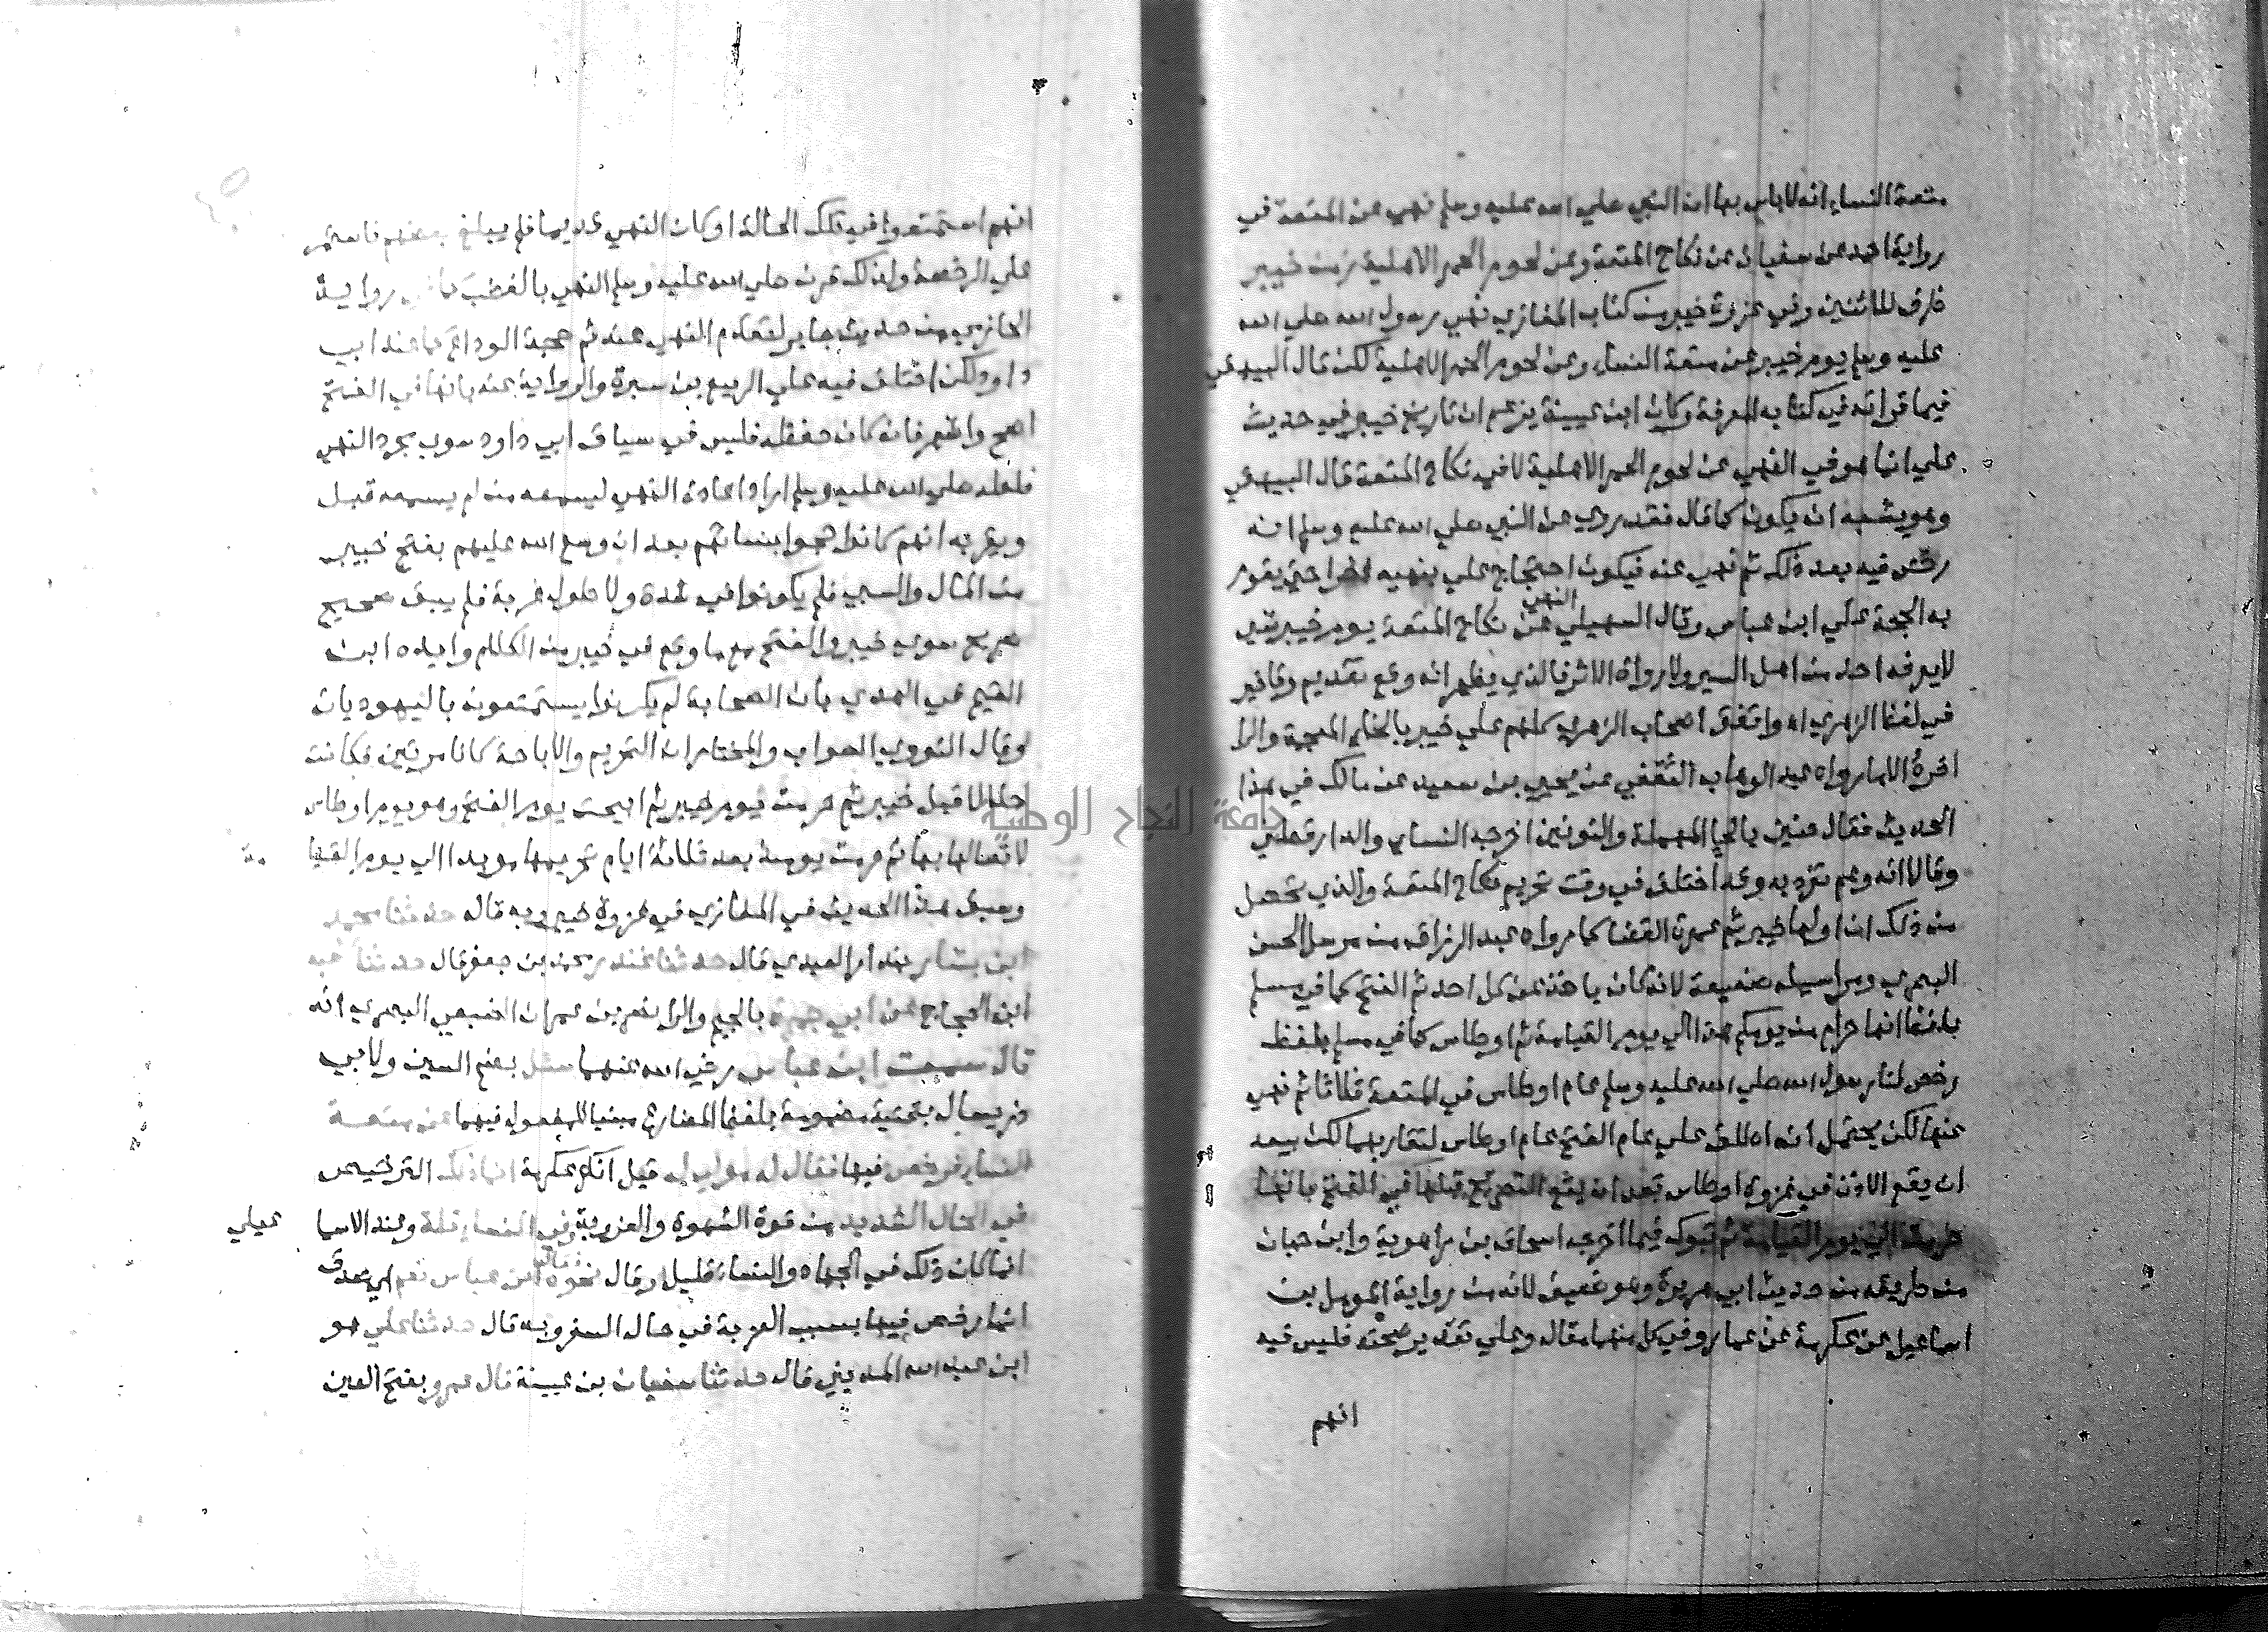 متعة النساء انه لا باس بها ان النبي صلي الله عليه وسلم نهي عن المتعة في
رواية احمد عن سفيان عن نكاح المتعة وعن لحوم الحمر الاهلية زمن خيبر
ظرف للاثنين وفي غزوة خيبر من كتاب المغازي نهي رسول الله صلي الله
عليه وسلم يوم خيبر عن متعة النساء وعن لحوم الحمر الاهلية لكن قال البيهقي
فيما قراته في كتابه المعرفة وكان ابن عيينة يزعم ان تاريخ خيبر في حديث
علي انما هو في النهي عن لحوم الحمر الاهلية لا في نكاح المتعة قال البيهقي
وهو يشبه ان يكون كما قال فقد روي عن النبي صلي الله عليه وسلم انه
رخص فيه بعد ذلك ثم نهي عنه فيكون احتجاج علي بنهيه اخرا حتي يقوم
به الحجة علي ابن عباس وقال السهيلي النهي عن نكاح المتعة يوم خيبر شي
لا يعرفه احد من اهل السير ولا رواة الاثر فالذي يظهر انه وقع تقديم وتاخير
في لفظ الزهري اه واتفق اصحاب الزهري كلهم علي خيبر بالخاء المعجمة والرا
اخره الا ما رواه عبد الوهاب الثقفي عن يحيي بن سعيد عن مالك في هذا
الحديث فقال حنين بالحا المهملة والنونين اخرجه النساي والدارقطني
وقالا انه وهم تفرد به وقد اختلف في وقت تحريم نكاح المتعة والذي تحصل
من ذلك ان اولها خيبر ثم عمرة القضا كما رواه عبد الرزاق من مرسل الحسن
البصري ومراسيله ضعيفة لانه كان ياخذ عن كل احد ثم الفتح كما في مسلم
بلفظ انها حرام من يومكم هذا الي يوم القيامة ثم اوطاس كما في مسلم بلفظ
رخص لنا رسول الله صلي الله عليه وسلم عام اوطاس في المتعة ثلاثا ثم نهي
عنها لكن يحتمل انه اطلق علي عام الفتح عام اوطاس لتقاربهما لكن يبعد
ان يقع الاذن في غزوة اوطاس بعد ان يقع التصريح قبلها في الفتح بانها
حرمت الي يوم القيامة ثم تبوك فيما اخرجه اسحاق بن راهوية وابن حبان
من طريقه من حديث ابي هريرة وهو ضعيف لانه من رواية المومل بن
اسماعيل عن عكرمة عن عمار وفي كل منهما مقال وعلي تقدير صحته فليس فيه
انهم
انهم استمتعوا في تلك الحالة او كان النهي قديما فلم يبلغ بعضهم فاستمر
علي الرخصة ولذلك قرن صلي الله عليه وسلم النهي بالغضب كما في رواية
الحازمي من حديث جابر لتقدم النهي عنه ثم حجة الوداع كما عند ابي
داود لكن اختلف فيه علي الربيع بن سبرة والرواية عنه بانها في الفتح
اصح واشهر فان كان حفظه فليس في سياق ابي داود سوي مجرد النهي
فلعله صلي الله عليه وسلم اراد اعادة النهي ليسمعه من لم يسمعه قبل
ويقربه انهم كانوا حجوا بنسائهم بعد ان وسع الله عليهم بفتح خيبر
من المال والسبي فلم يكونوا في شدة ولا طول غربة فلم يبق صحيح
صريح سوي خيبر والفتح مع ما وقع في خيبر من الكلام وايده ابن
القيم في الهدي بان الصحابة لم يكونوا يستمتعون باليهوديات
وقال النووي الصواب والمختار ان التحريم والاباحة كانا مرتين فكانت
حلالا قبل خيبر ثم حرمت يوم خيبر ثم ابيحت يوم الفتح وهو يوم اوطاس
لاتصالها بها ثم حرمت يومئذ بعد ثلاثة ايام تحريما مويدا الي يوم القيا مة
وسبق هذا الحديث في المغازي في غزوة خيبر وبه قال حدثنا محمد
ابن بشار بندار العبدي قال حدثنا غندر محمد بن جعفر قال حدثنا شعبة
ابن الحجاج عن ابي جمرة بالجيم والرا نصر بن عمران الضبعي البصري انه
قال سمعت ابن عباس رضي الله عنهما سئل بضم السين ولابي
ذر يسال بتحتية مضمومة بلفظ المضارع مبنيا للمفعول فيهما عن متعة
النساء فرخص فيها فقال له مولي له قيل انه عكرمة انما ذلك الترخيص
في الحال الشديد من قوة الشهوة والعزوبة وفي النساء قلة وعند الاسما عيلي
انما كان ذلك في الجهاد والنساء قليل وقال نحوه فقال ابن عباس نعم اي صدق
انما رخص فيها بسبب العزبة في حال السفر وبه قال حدثنا علي هو
ابن عبد الله المديني قال حدثنا سفيان بن عيينة قال عمرو بفتح العين
جامعة النجاح الوطنية